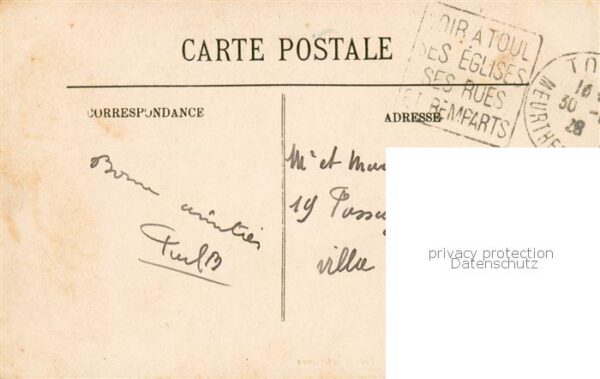 CARTE POSTALE
VOIR A TOUL
SES ÉGLISES
SES RUES
ET REMPARTS
TO
16
30
28
MEURTHE
CORRESPONDANCE
ADRESSE
Bonne amitiés
Mr et
19 Passa
ville
privacy protection
Datenschutz